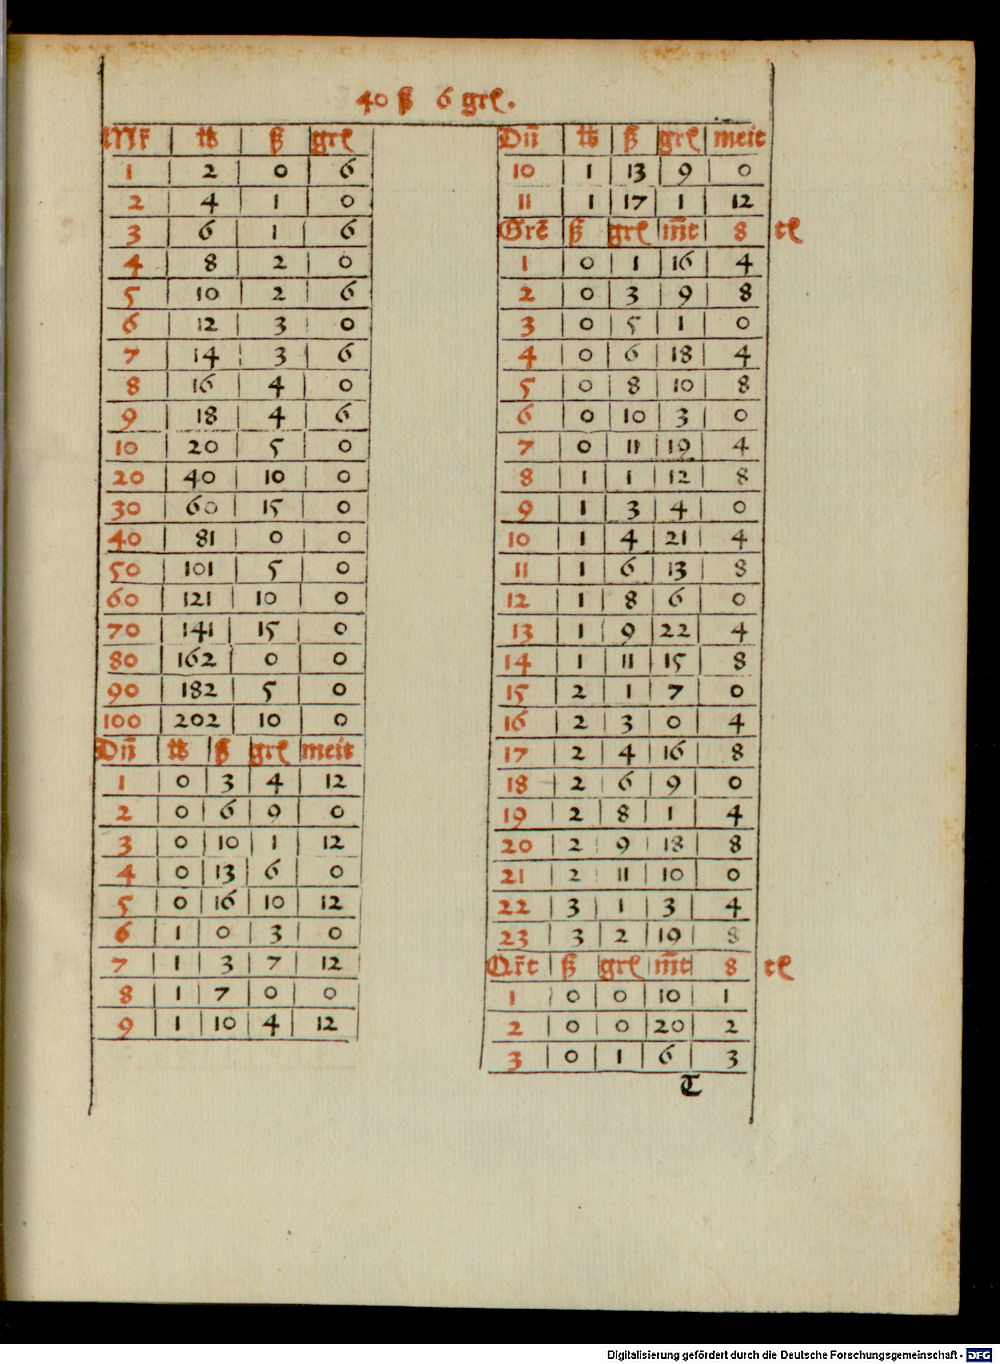 40 ß 6 grl.
Mr̄ | lb | ß | grl
1 | 2 | 0 | 6
2 | 4 | 1 | 0
3 | 6 | 1 | 6
4 | 8 | 2 | 0
5 | 10 | 2 | 6
6 | 12 | 3 | 0
7 | 14 | 3 | 6
8 | 16 | 4 | 0
9 | 18 | 4 | 6
10 | 20 | 5 | 0
20 | 40 | 10 | 0
30 | 60 | 15 | 0
40 | 81 | 0 | 0
50 | 101 | 5 | 0
60 | 121 | 10 | 0
70 | 141 | 15 | 0
80 | 162 | 0 | 0
90 | 182 | 5 | 0
100 | 202 | 10 | 0
Dn̄ | lb | ß | grl | meit
1 | 0 | 3 | 4 | 12
2 | 0 | 6 | 9 | 0
3 | 0 | 10 | 1 | 12
4 | 0 | 13 | 6 | 0
5 | 0 | 16 | 10 | 12
6 | 1 | 0 | 3 | 0
7 | 1 | 3 | 7 | 12
8 | 1 | 7 | 0 | 0
9 | 1 | 10 | 4 | 12
Dn̄ | lb | ß | grl | meit
10 | 1 | 13 | 9 | 0
11 | 1 | 17 | 1 | 12
Grc̄ | ß | grl | m̄t | 8 tl
1 | 0 | 1 | 16 | 4
2 | 0 | 3 | 9 | 8
3 | 0 | 5 | 1 | 0
4 | 0 | 6 | 18 | 4
5 | 0 | 8 | 10 | 8
6 | 0 | 10 | 3 | 0
7 | 0 | 11 | 19 | 4
8 | 1 | 1 | 12 | 8
9 | 1 | 3 | 4 | 0
10 | 1 | 4 | 21 | 4
11 | 1 | 6 | 13 | 8
12 | 1 | 8 | 6 | 0
13 | 1 | 9 | 22 | 4
14 | 1 | 11 | 15 | 8
15 | 2 | 1 | 7 | 0
16 | 2 | 3 | 0 | 4
17 | 2 | 4 | 16 | 8
18 | 2 | 6 | 9 | 0
19 | 2 | 8 | 1 | 4
20 | 2 | 9 | 18 | 8
21 | 2 | 11 | 10 | 0
22 | 3 | 1 | 3 | 4
23 | 3 | 2 | 19 | 8
Qr̄t | ß | grl | m̄t | 8 tl
1 | 0 | 0 | 10 | 1
2 | 0 | 0 | 20 | 2
3 | 0 | 1 | 6 | 3
T
Digitalisierung gefördert durch die Deutsche Forschungsgemeinschaft - DFG